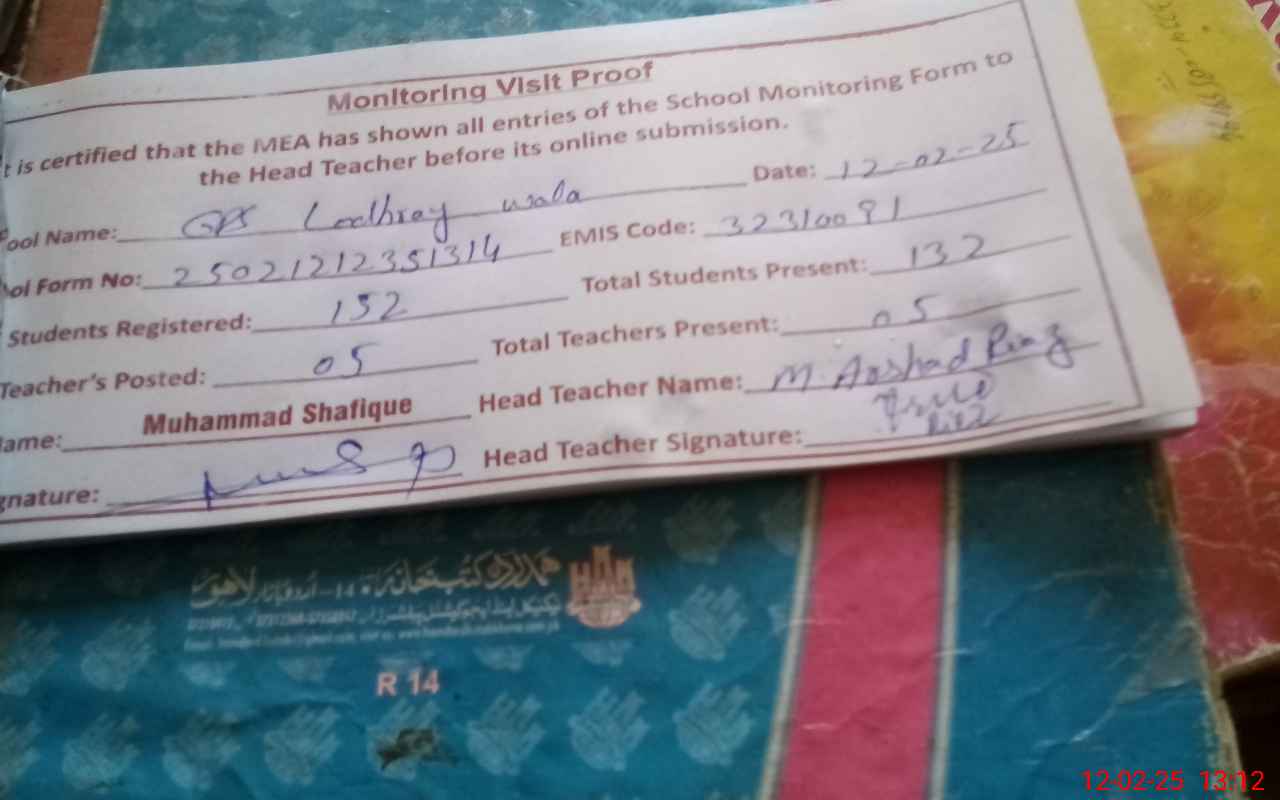 Monitoring Visit Proof
t is certified that the MEA has shown all entries of the School Monitoring Form to
the Head Teacher before its online submission.
ool Name: GPS Lodhray wala Date: 12-02-25
ol Form No: 25021212351314 EMIS Code: 32310091
Students Registered: 152 Total Students Present: 132
Teacher's Posted: 05 Total Teachers Present: 05
ame: Muhammad Shafique Head Teacher Name: M. Arshad Riaz
gnature: Head Teacher Signature:
ہمدرد کتب خانہ
اردو بازار لاہور
R 14
12-02-25 13:12